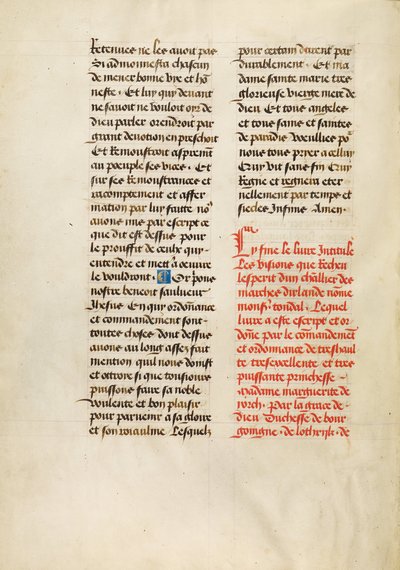 Retenues ne les auoit pas
Si admonnesta chascun
de mener bonne vye et hō
neste. Et luy qui deuant
ne sauoit ne vouloit oyr de
dieu parler orendroit par
grant deuotion en preschoit
Et Remoustroit asprement
au poeuple ses vices. Et
sur ses Remoustrances et
racomptement et affer
mation par luy faitte noꝰ
auons mis par escript ce
que dit est dessus pour
le prouffit de ceulx qui
entendre et mettre a oeuure
le vouldront. Or prions
nostre benoit saulueur
Jhesus En qui ordonnance
et commandement sont
toutes choses dont dessus
auons au long assez fait
mention quil nous doinst
et ottroie si que tousiours
puissons faire sa noble
voulente et bon plaisir
pour paruenir a sa gloire
et son roiaulme Lesquelz
pour certain durent par
durablement. Et ma
dame sainte marie tres
glorieuse vierge mere de
dieu Et tous angeles
et tous sains et saintes
de paradis Voeullies poꝰ
nous tous pryer a celluy
Quy vit sans fin Quy
Regne et regnera eter
nellement par temps et
siecles Infinis Amen.
Cy fine le liure Intitule
Les visions que Recheu
lesperit dun chlr̄ des
marches dirlande nōme
monsʳ tondal. Lequel
liure a este escript et or
dōne par le cōmandement
et ordonnance de treshaul
te tresexcellente et tres
puissante princhesse
Madame marguerite de
yorch. Par la grace de
dieu Duchesse de bour
goingne. de lothrijk. de